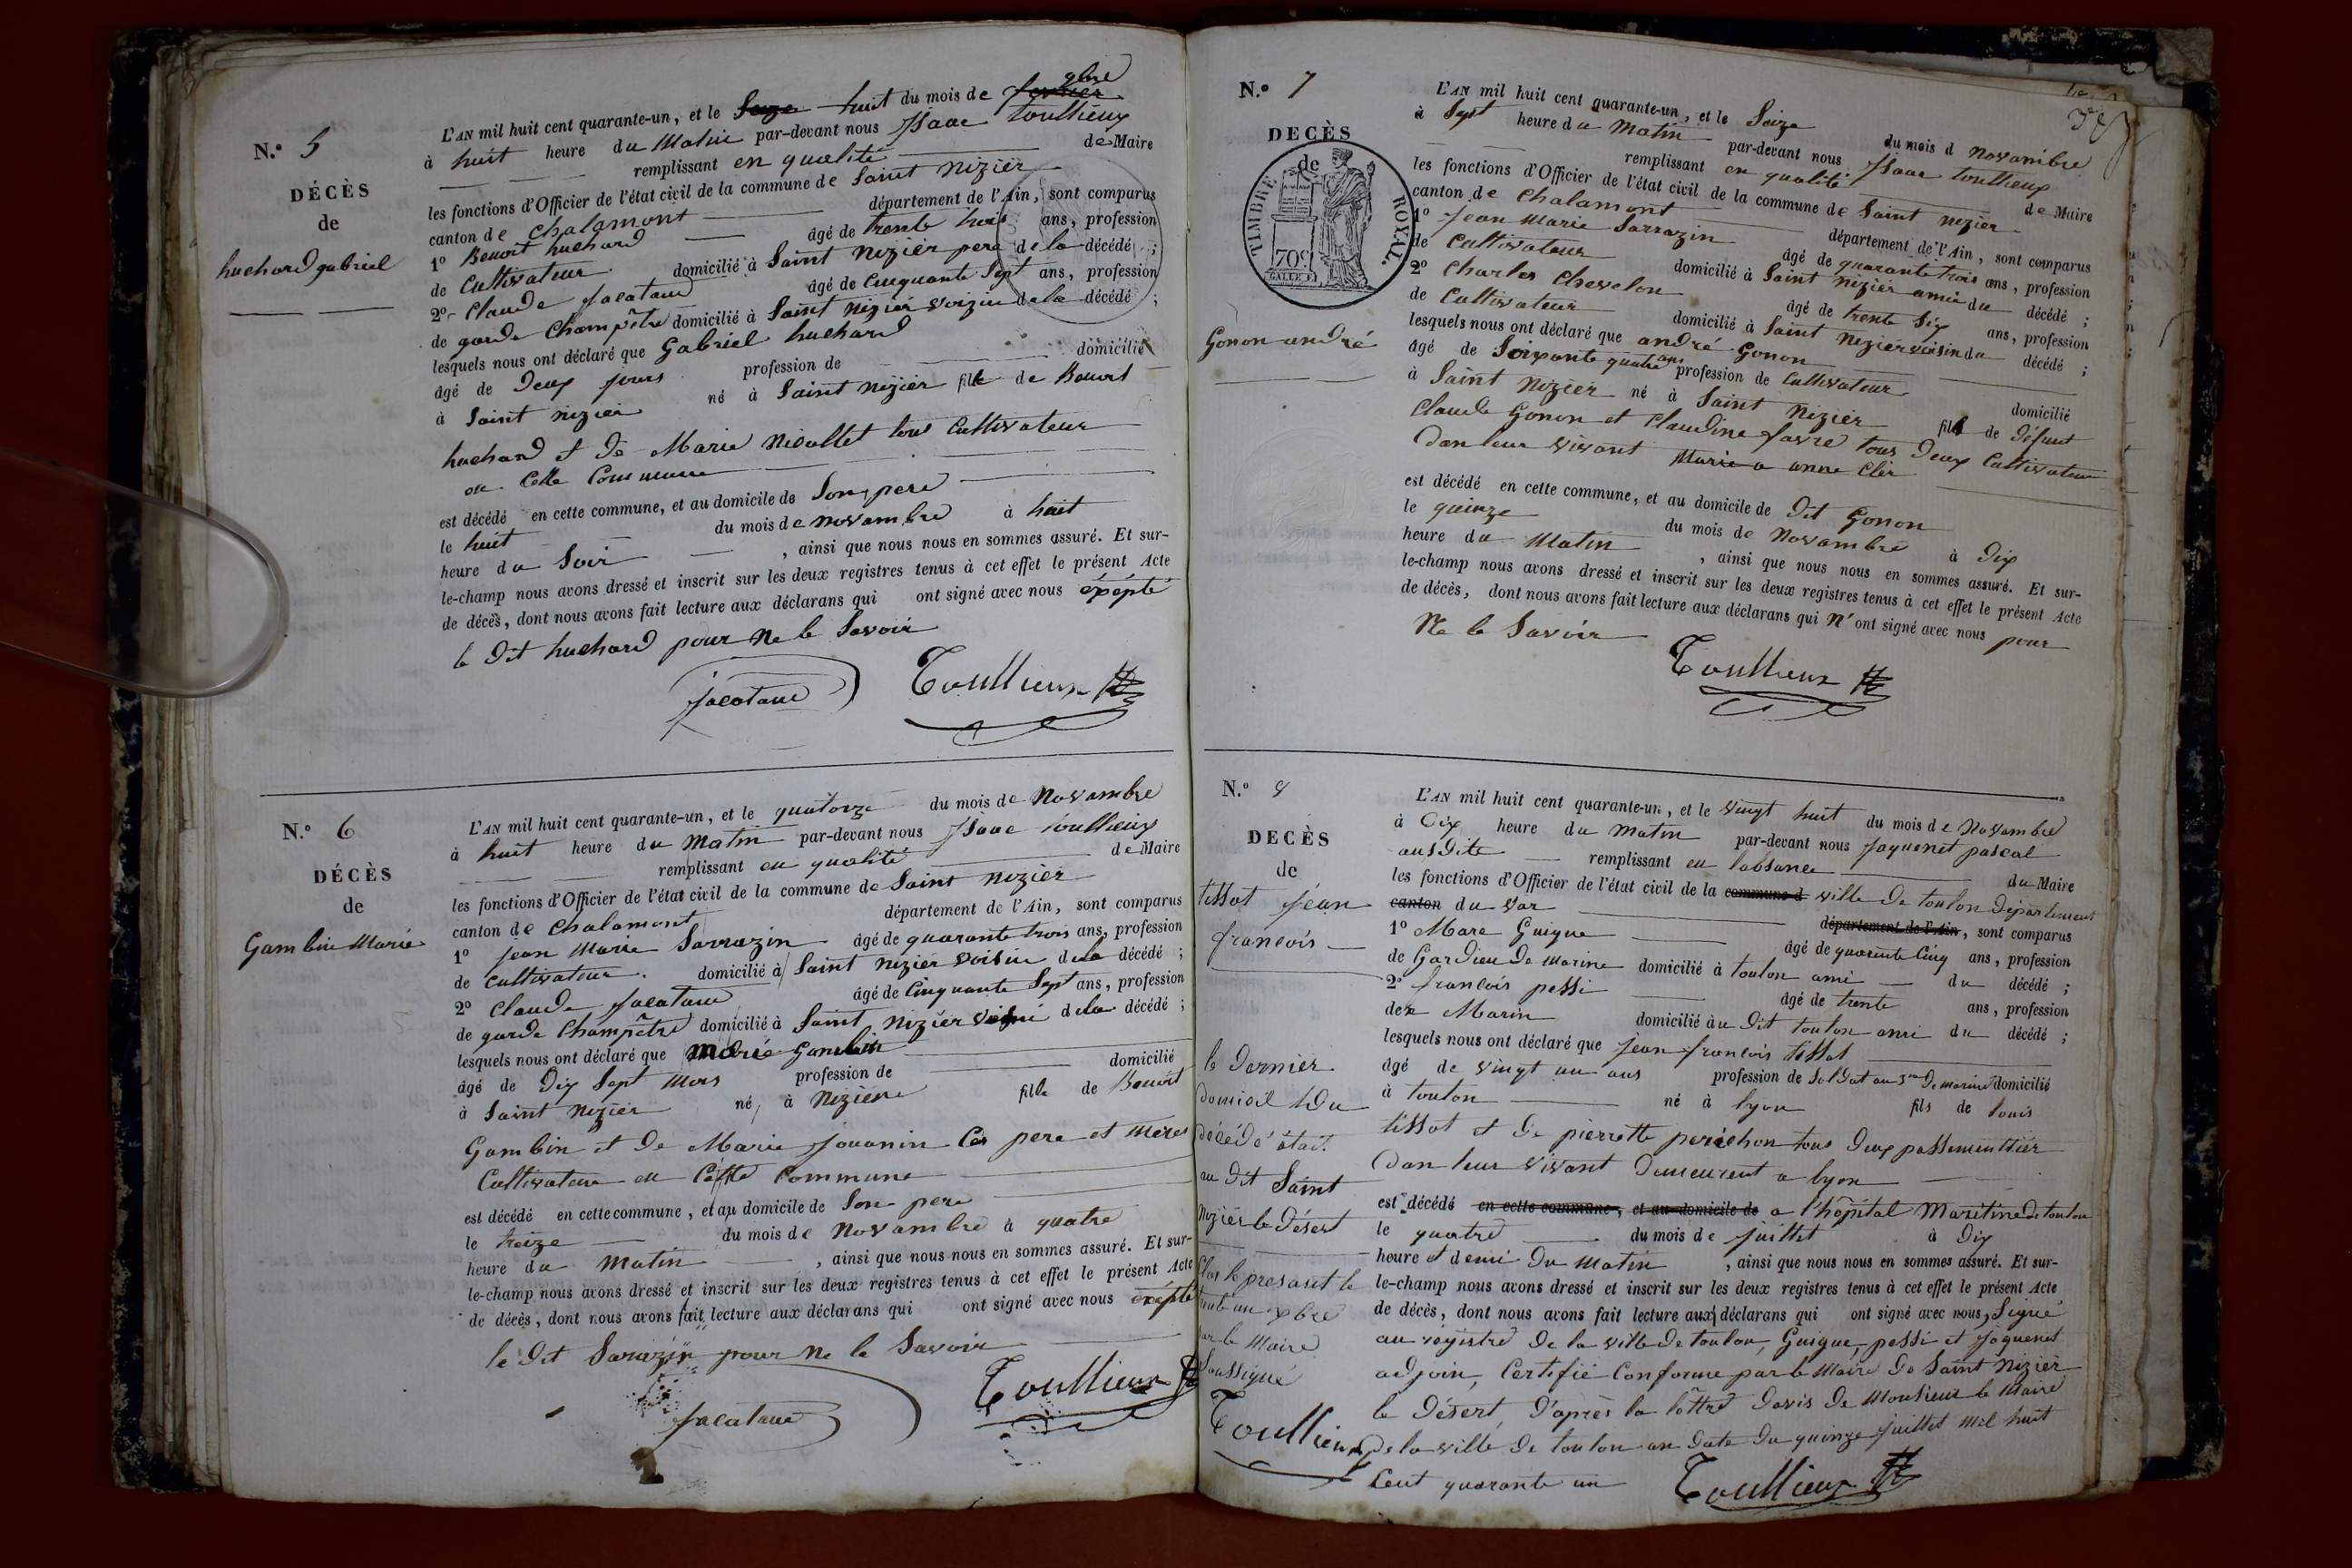 N.° 5
DÉCÈS
de
huchard gabriel
L'AN mil huit cent quarante-un, et le Seze huit du mois de fevrier 9bre
à huit heure du Matin par-devant nous Isaac Toullieux
remplissant en qualité de Maire
les fonctions d'Officier de l'état civil de la commune de Saint Nizier
canton de Chalamont département de l'Ain, sont comparus
1° Benoit huchard âgé de trente trois ans, profession
de Cultivateur domicilié à Saint Nizier pere de la décédé ;
2° Claude Jacatane âgé de Cinquante Sept ans, profession
de garde Champêtre domicilié à Saint Nizier voizin de la décédé ;
lesquels nous ont déclaré que Gabriel huchard
âgé de Deux jours profession de domicilié
à Saint Nizier né à Saint Nizier fils de Benoit
huchard et de Marie Nicollet tous Cultivateur
en Cette Commune
est décédé en cette commune, et au domicile de Son pere
le huit du mois de Novambre à huit
heure du Soir , ainsi que nous nous en sommes assuré. Et sur-
le-champ nous avons dressé et inscrit sur les deux registres tenus à cet effet le présent Acte
de décès, dont nous avons fait lecture aux déclarans qui ont signé avec nous éxépté
le dit huchard pour Ne le Savoir
Jacatane Toullieux
N.° 6
DÉCÈS
de
Gambin Marie
L'AN mil huit cent quarante-un, et le quatorze du mois de Novambre
à huit heure du Matin par-devant nous Isaac Toullieux
remplissant en qualité de Maire
les fonctions d'Officier de l'état civil de la commune de Saint Nizier
canton de Chalamont département de l'Ain, sont comparus
1° Jean Marie Sarrazin âgé de quarante trois ans, profession
de Cultivateur domicilié à Saint Nizier voisin de la décédé ;
2° Claude Jacatane âgé de Cinquante Sept ans, profession
de garde Champêtre domicilié à Saint Nizier de la décédé ;
lesquels nous ont déclaré que Marie Gambin
âgé de Dix Sept Mois profession de domicilié
à Saint Nizier né à Nizier fille de Benoit
Gambin et de Marie Jouanin Ces pere et meres
Cultivateur en Cette Commune
est décédé en cette commune, et au domicile de Son pere
le treize du mois de Novambre à quatre
heure du Matin , ainsi que nous nous en sommes assuré. Et sur-
le-champ nous avons dressé et inscrit sur les deux registres tenus à cet effet le présent Acte
de décès, dont nous avons fait lecture aux déclarans qui ont signé avec nous éxépté
le dit Sarazin pour Ne le Savoir
Jacatane Toullieux
N.° 7
DÉCÈS
de
TIMBRE ROYAL.
70c
Gonon andré
L'AN mil huit cent quarante-un, et le Seize du mois d Novambre
à Sept heure du Matin par-devant nous Isaac Toullieux
remplissant en qualité de Maire
les fonctions d'Officier de l'état civil de la commune de Saint Nizier
canton de Chalamont département de l'Ain, sont comparus
1° Jean Marie Sarrazin âgé de quarante trois ans, profession
de Cultivateur domicilié à Saint Nizier amie du décédé ;
2° Charles Chevelon âgé de trente Six ans, profession
de Cultivateur domicilié à Saint Nizier voisin du décédé ;
lesquels nous ont déclaré que andré Gonon
âgé de Soixante quatre ans profession de Cultivateur domicilié
à Saint Nizier né à Saint Nizier fils de Défunt
Claude Gonon et Claudine favre tous Deux Cultivateur
Dan leur vivant Marie a anne Clér
est décédé en cette commune, et au domicile de Dit Gonon
le quinze du mois de Novambre à Dix
heure du Matin , ainsi que nous nous en sommes assuré. Et sur-
le-champ nous avons dressé et inscrit sur les deux registres tenus à cet effet le présent Acte
de décès, dont nous avons fait lecture aux déclarans qui n'ont signé avec nous pour
Ne le Savoir
Toullieux
N.° 8
DÉCÈS
de
tissot Jean
francois
le Dernier
Domicil Du
décédé était
au dit Saint
Nizier le Désert
Clos le presant le
trente un xbre
par le Maire
Soussigné
Toullieux
L'AN mil huit cent quarante-un, et le vingt huit du mois de Novambre
à Dix heure du Matin par-devant nous Jaquenet pascal
remplissant en l'absance du Maire
les fonctions d'Officier de l'état civil de la commune d ville de toulon Département
canton du Var département de l'Ain, sont comparus
1° Marc Guigue âgé de quarente Cinq ans, profession
de Gardien De Marine domicilié à toulon ami du décédé ;
2° francois pessi âgé de trente ans, profession
de Marin domicilié au Dit toulon ami du décédé ;
lesquels nous ont déclaré que Jean francois tissot
âgé de vingt un ans profession de Soldat au 3me De marine domicilié
à toulon né à lyon fils de louis
tissot et De pierrette perichon tous Deux passementier
Dan leur vivant Demeurent a lyon
est décédé en cette commune, et au domicile de a l'hôpital Maritime de toulon
le quatre du mois de juillet à Dix
heure et demi du Matin , ainsi que nous nous en sommes assuré. Et sur-
le-champ nous avons dressé et inscrit sur les deux registres tenus à cet effet le présent Acte
de décès, dont nous avons fait lecture aux déclarans qui ont signé avec nous, Signé
au régistre De la ville de toulon, Guigue, pessi et Jaquenet
adjoin, Certifié Conforme par le Maire De Saint Nizier
le Désert, D'après la lettre Davis De Monsieur le Maire
De la ville De toulon an Date Du quinze juillet mil huit
Cent quarante un Toullieux